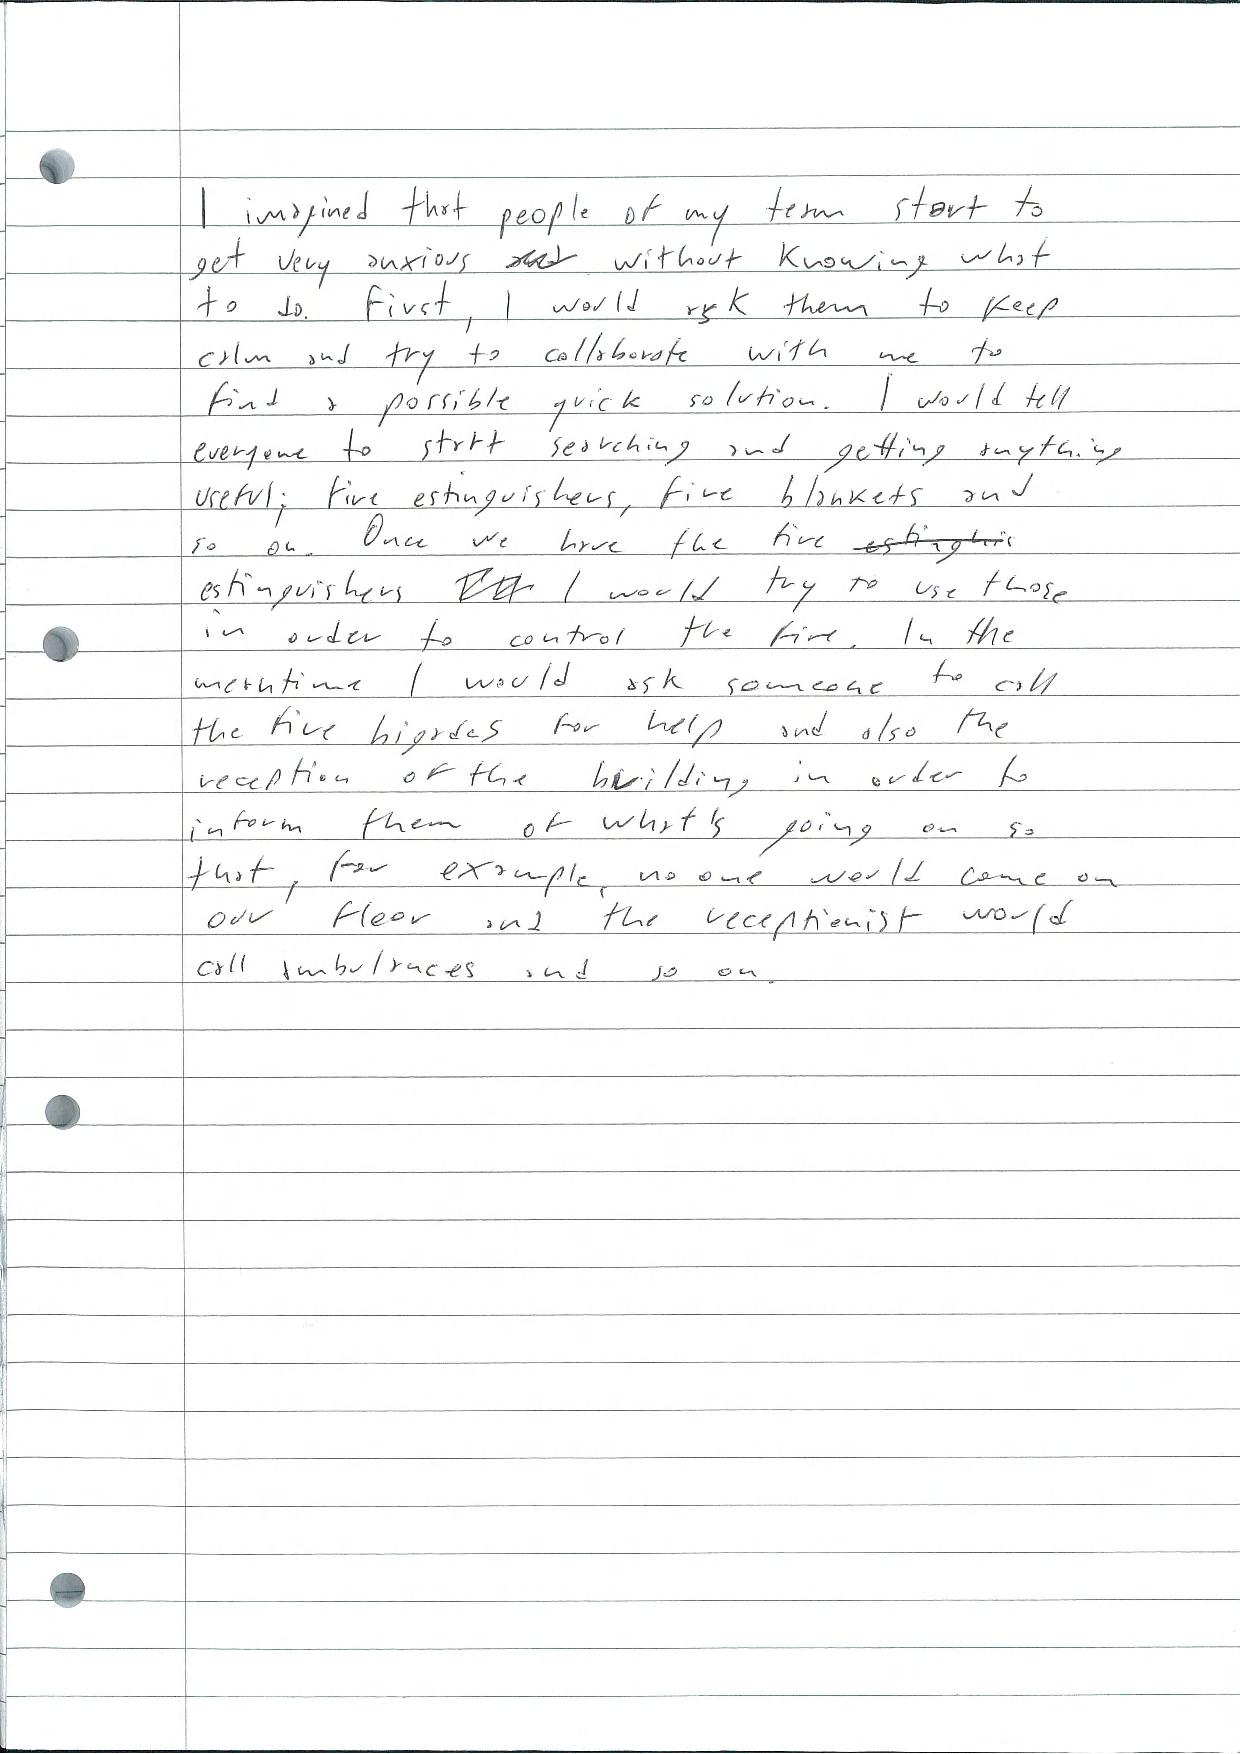 I imagined that people of my team start to
get very anxious without knowing what
to do. First, I would ask them to keep
calm and try to collaborate with me to
find a possible quick solution. I would tell
everyone to start searching and getting anything
useful; fire estinguishers, fire blankets and
so on. Once we have the fire estinghis
estinguishers I would try to use those
in order to control the fire. In the
meantime I would ask someone to call
the fire bigrades for help and also the
reception of the building in order to
inform them of what's going on so
that, for example, no one would come on
our floor and the receptionist would
call ambulances and so on.